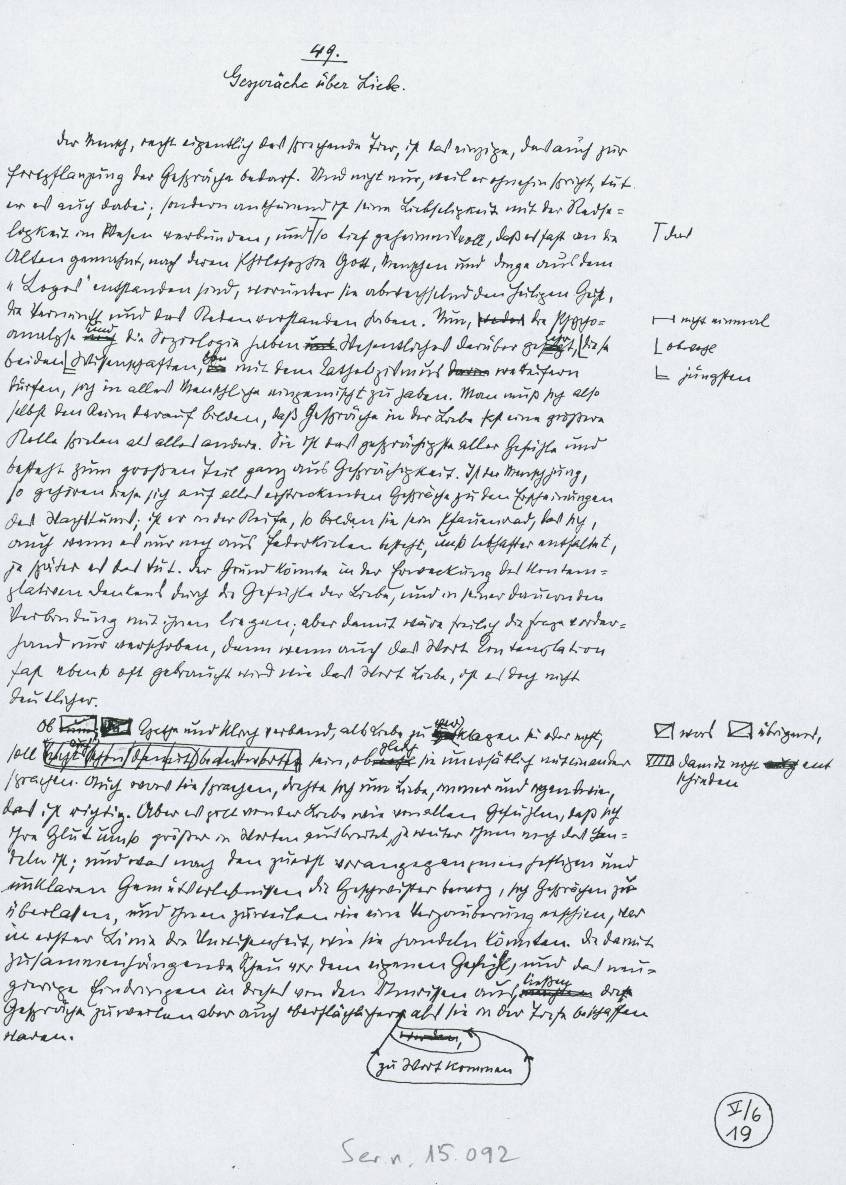 49.
Gespräche über Liebe.
Der Mensch, recht eigentlich das sprechende Tier, ist das einzige, das auch zur
Fortpflanzung der Gespräche bedarf. Und nicht nur, weil er ohnehin spricht, tut
er es auch dabei; sondern anscheinend ist seine Liebseligkeit mit der Redse=
ligkeit im Wesen verbunden, und so tief geheimnisvoll, daß es fast an die
das
Alten gemahnt, nach deren Philosophie Gott, Menschen und Dinge aus dem
„Logos" entstanden sind, worunter sie abwechselnd den Heiligen Geist,
die Vernunft und das Reden verstanden haben. Nun, die Psycho=
nicht einmal
analyse und die Soziologie haben Wesentliches darüber gelehrt, diese
obwohl
beiden Wissenschaften, mit dem Katholizismus wetteifern
jüngsten
dürfen, sich in alles Menschliche eingemischt zu haben. Man muß sich also
selbst den Reim darauf bilden, daß Gespräche in der Liebe fast eine größere
Rolle spielen als alles andere. Sie ist das gesprächigste aller Gefühle und
besteht zum großen Teil ganz aus Gesprächigkeit. Ist der Mensch jung,
so gehören diese sich auf alles erstreckenden Gespräche zu den Erscheinungen
des Wachstums; ist er in der Reife, so bilden sie sein Pfauenrad, das sich,
auch wenn es nur noch aus Federkielen besteht, umso lebhafter entfaltet,
je später es das tut. Der Grund könnte in der Erweckung des kontem=
plativen Denkens durch die Gefühle der Liebe, und in seiner dauernden
Verbindung mit ihnen liegen; aber damit wäre freilich die Frage vorder=
hand nur verschoben, denn wenn auch das Wort Kontemplation
fast ebenso oft gebraucht wird wie das Wort Liebe, ist es doch nicht
deutlicher.
Ob Agathe und Ulrich verband, als Liebe zu klagen sei oder nicht,
was übrigens,
soll sein, obgleich sie unersättlich miteinander
damit nicht ent
schieden
sprachen. Auch was sie sprachen, drehte sich um Liebe, immer und irgendwie,
das ist richtig. Aber es gilt von der Liebe wie von allen Gefühlen, daß sich
ihre Glut umso größer in Worten ausbreitet, je weiter ihnen noch das Han=
deln ist; und was nach den zuerst vorangegangenen heftigen und
unklaren Gemütserlebnissen die Geschwister bewog, sich Gesprächen zu
überlassen, und ihnen zuweilen wie eine Verzauberung erschien, war
in erster Linie die Unwissenheit, wie sie handeln könnten. Die damit
zusammenhängende Scheu vor dem eigenen Gefühl, und das neu=
gierige Eindringen in dieses von den Umrissen aus, ließen diese
Gespräche zuweilen aber auch oberflächlicher als sie in der Tiefe beschaffen
waren.
werden,
zu Wort kommen
V/6
19
Ser. n. 15.092